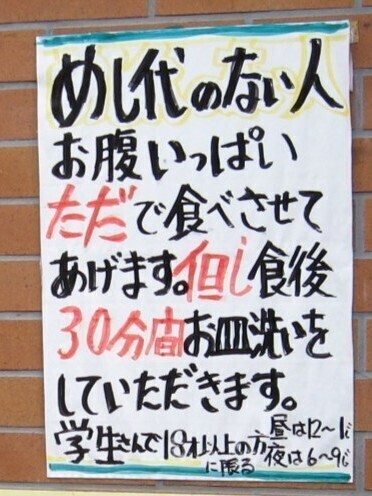 めし代のない人
お腹いっぱい
ただで食べさせて
あげます。但し食後
30分間お皿洗いを
していただきます。
学生さんで18才以上の方に限る
昼は12〜1じ
夜は6〜9じ